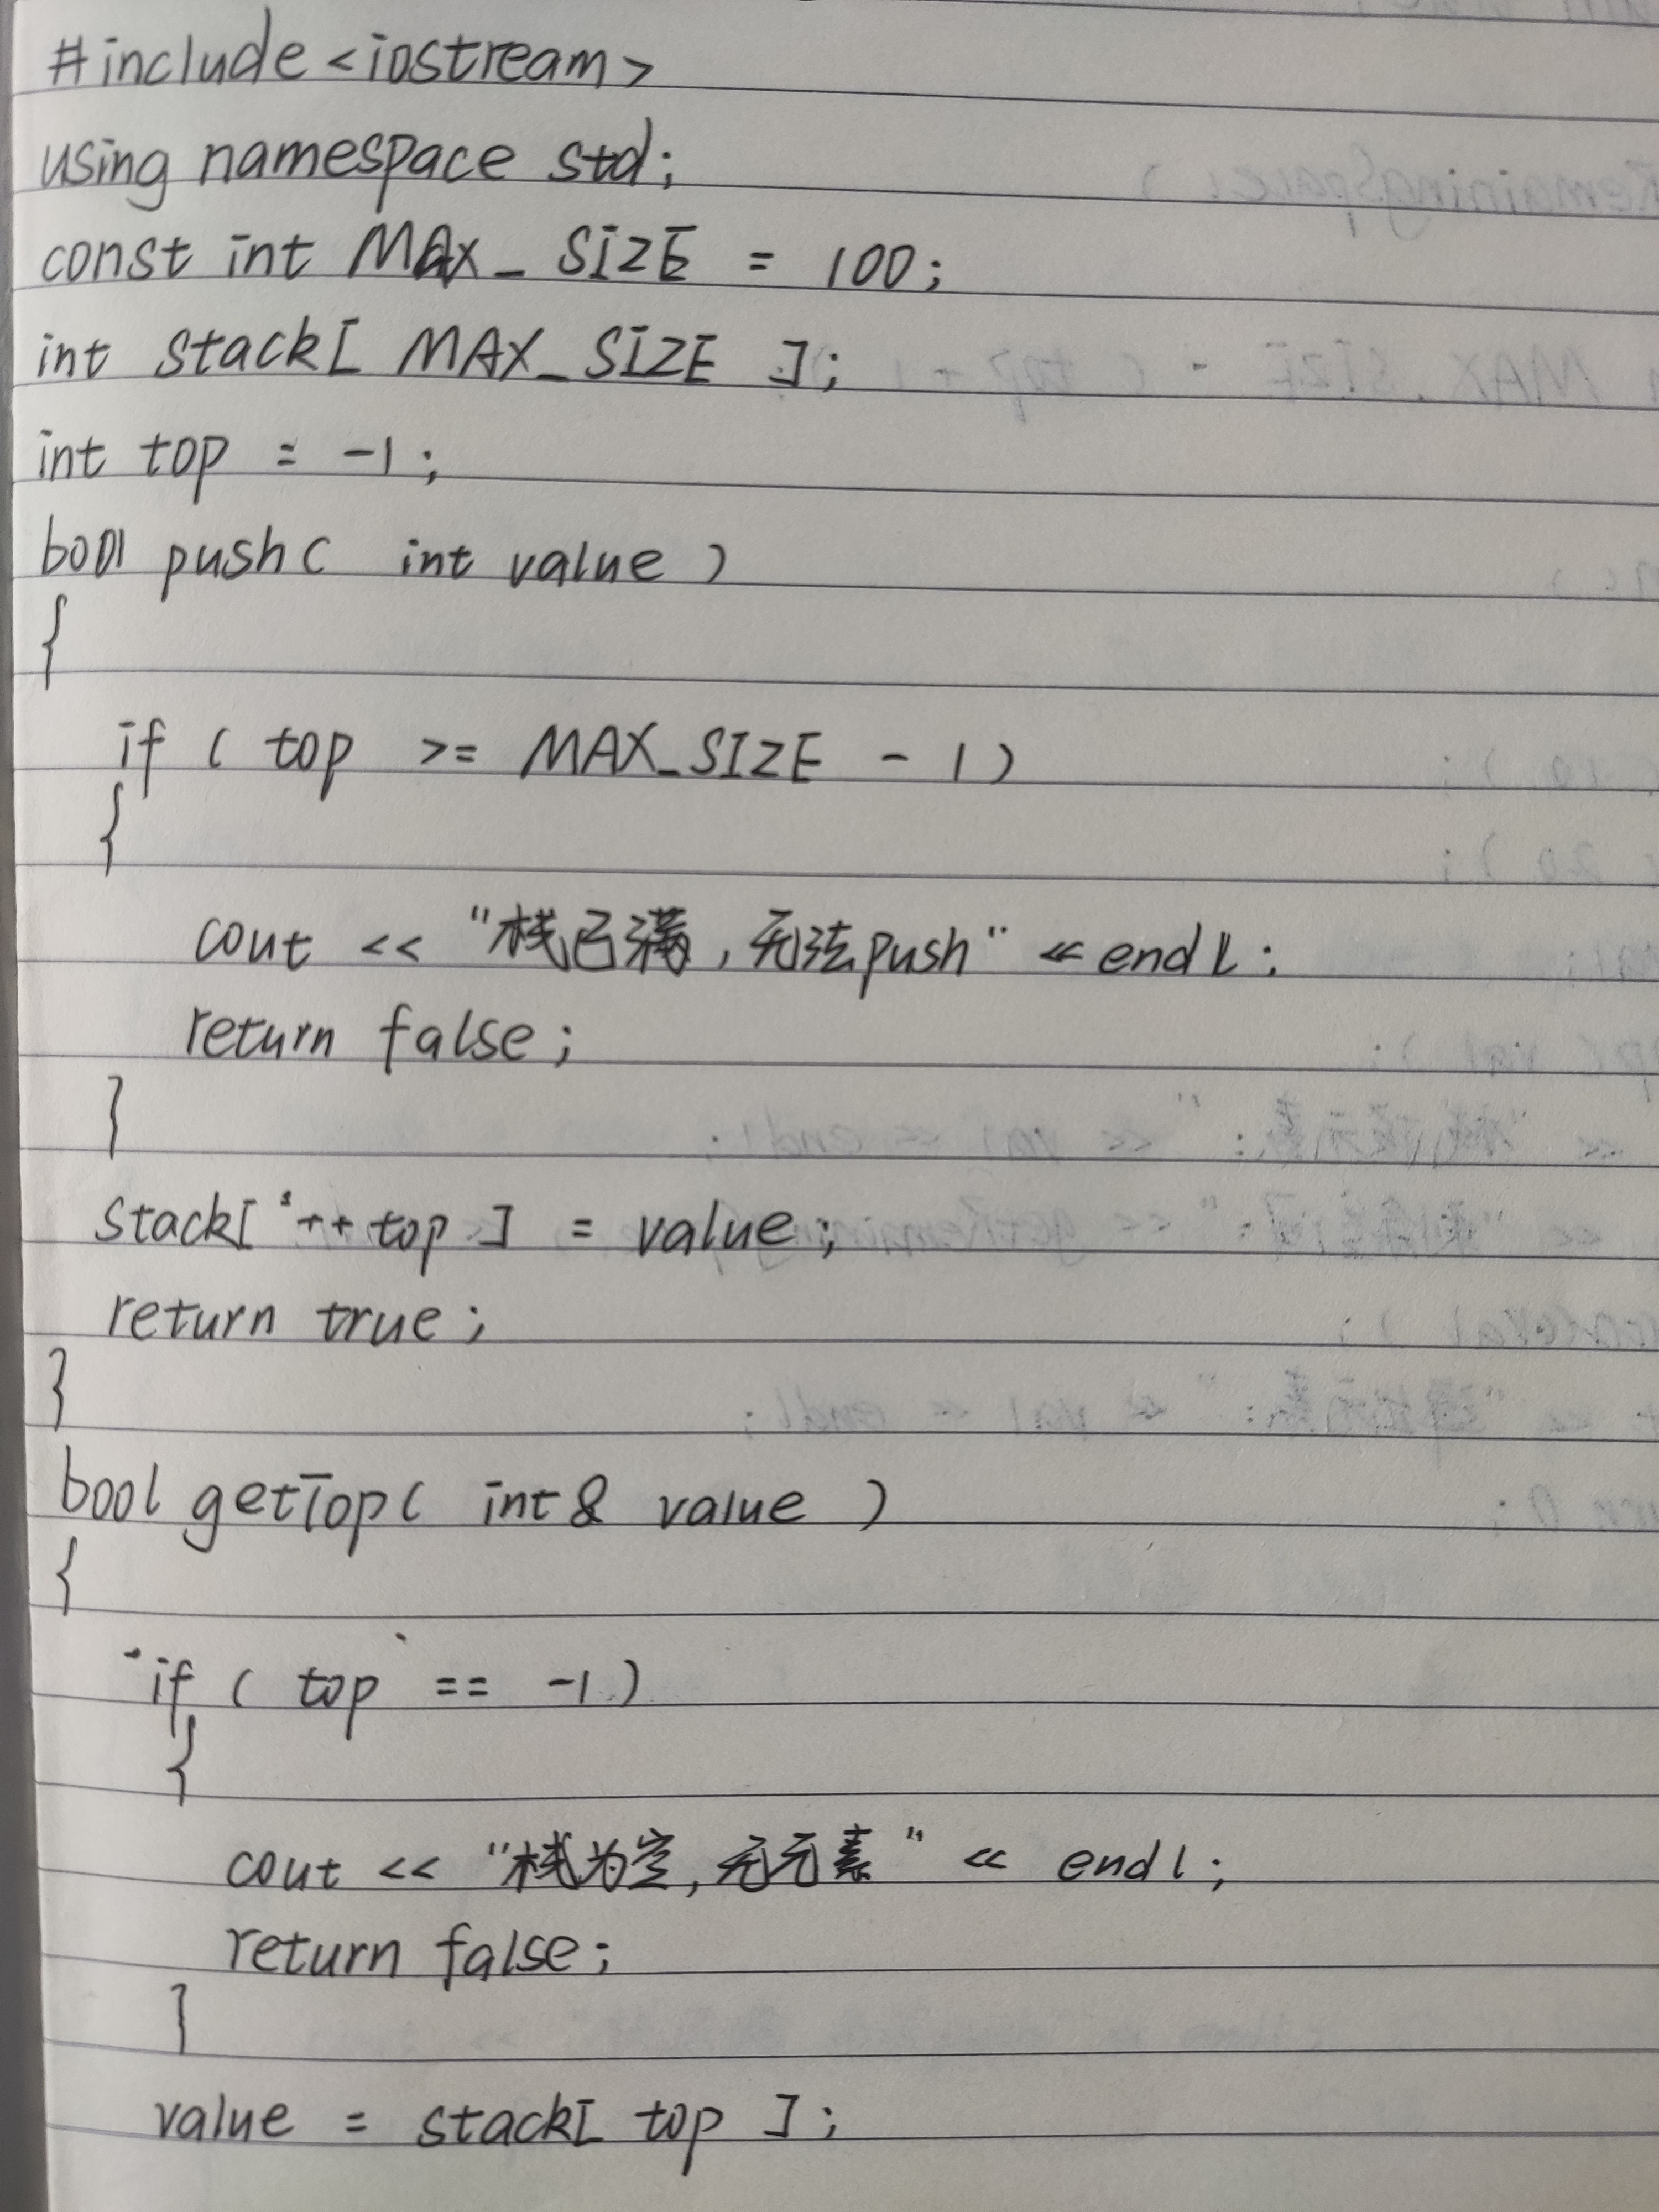 #include <iostream>
using namespace std;
const int MAX_SIZE = 100;
int stack[ MAX_SIZE ];
int top = -1;
bool push( int value )
{
if ( top >= MAX_SIZE - 1 )
{
cout << "栈已满,无法push" << endl;
return false;
}
stack[ ++top ] = value;
return true;
}
bool getTop( int& value )
{
if ( top == -1 )
{
cout << "栈为空,无元素" << endl;
return false;
}
value = stack[ top ];